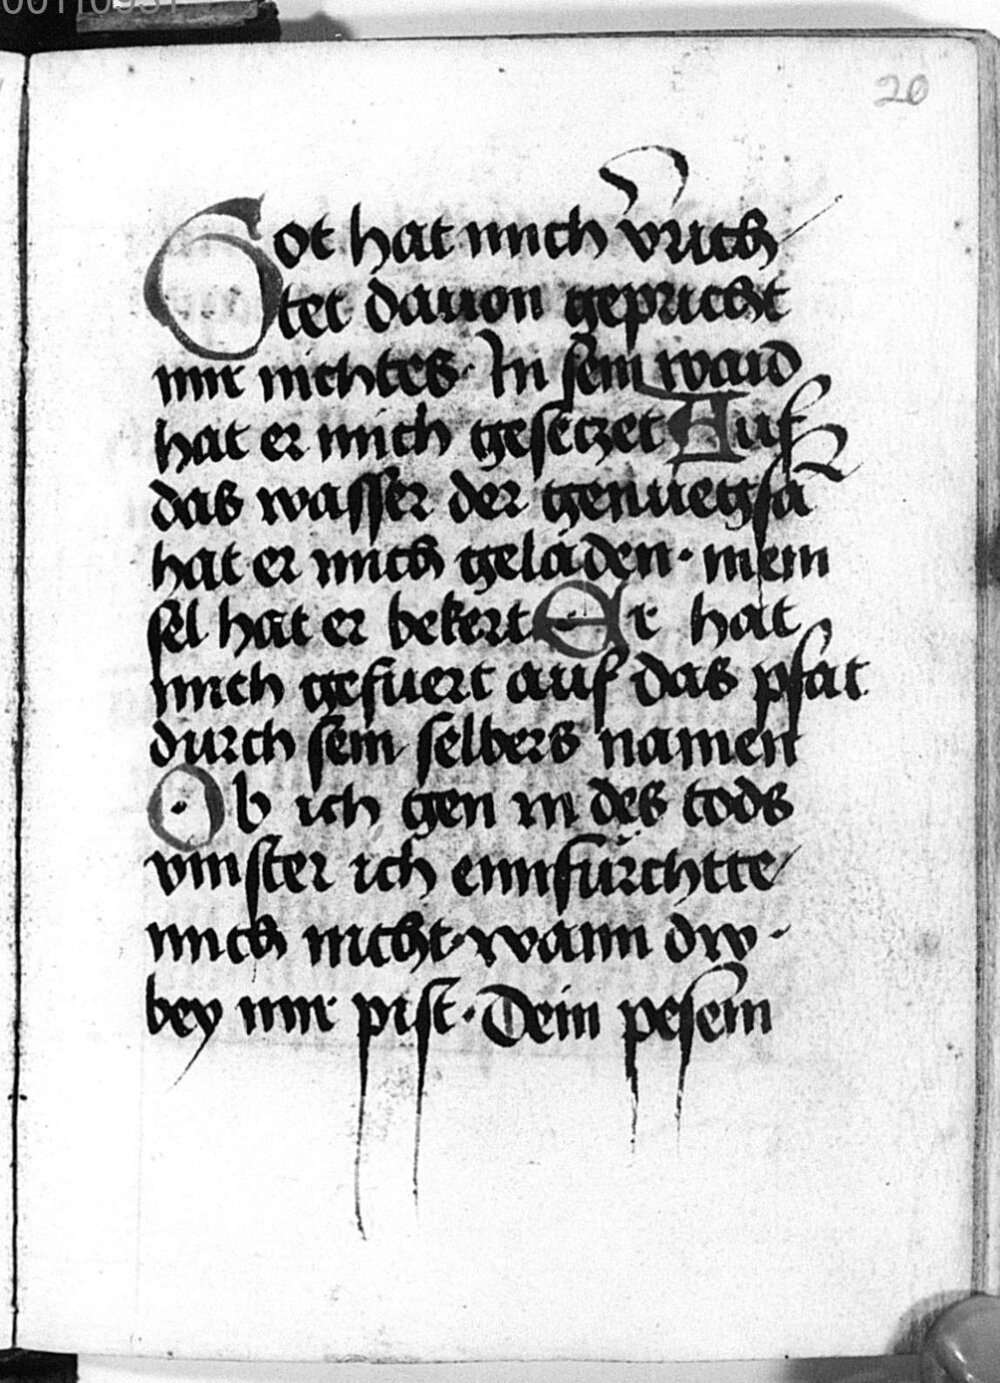 20
Got hat mich vrich
tet dauon gepricht
mir nichtes · In sein waid
hat er mich gesetzet Auf
das wasser der genuegsā
hat er mich geladen · mein
sel hat er bekert Er hat
mich gefuert auf das pfat
durch sein selbers namen
Ob ich gen in des tods
vinster ich ennfürchtte
mich nicht · wann dw ·
bey mir pist · Dein pesem